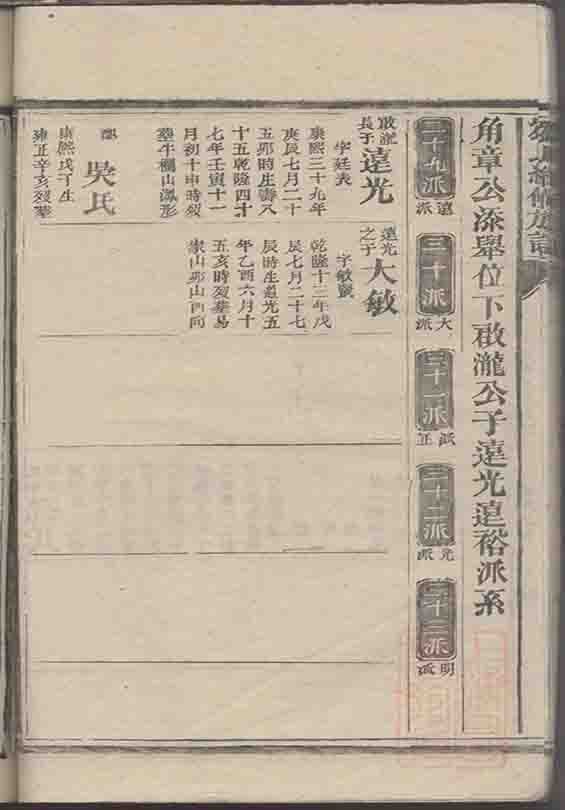 角章公添舉位下啟瀧公子遠光遠裕派系
三十九派
遠派
三十派
大派
三十一派
派正
三十二派
光派
三十三派
明派
啟瀧
長子
遠光
字廷表
康熙三十九年
庚辰七月二十
五卯時生壽八
十五乾隆四十
七年壬寅十一
月初十申時歿
葬牛欄山鳳形
吳氏
康熙戊子生
雍正辛亥歿葬
遠光
之子
大敏
字敏
乾隆十三年戊
辰七月二十七
辰時生道光五
年乙酉六月十
五亥時歿葬易
家山卯山酉向